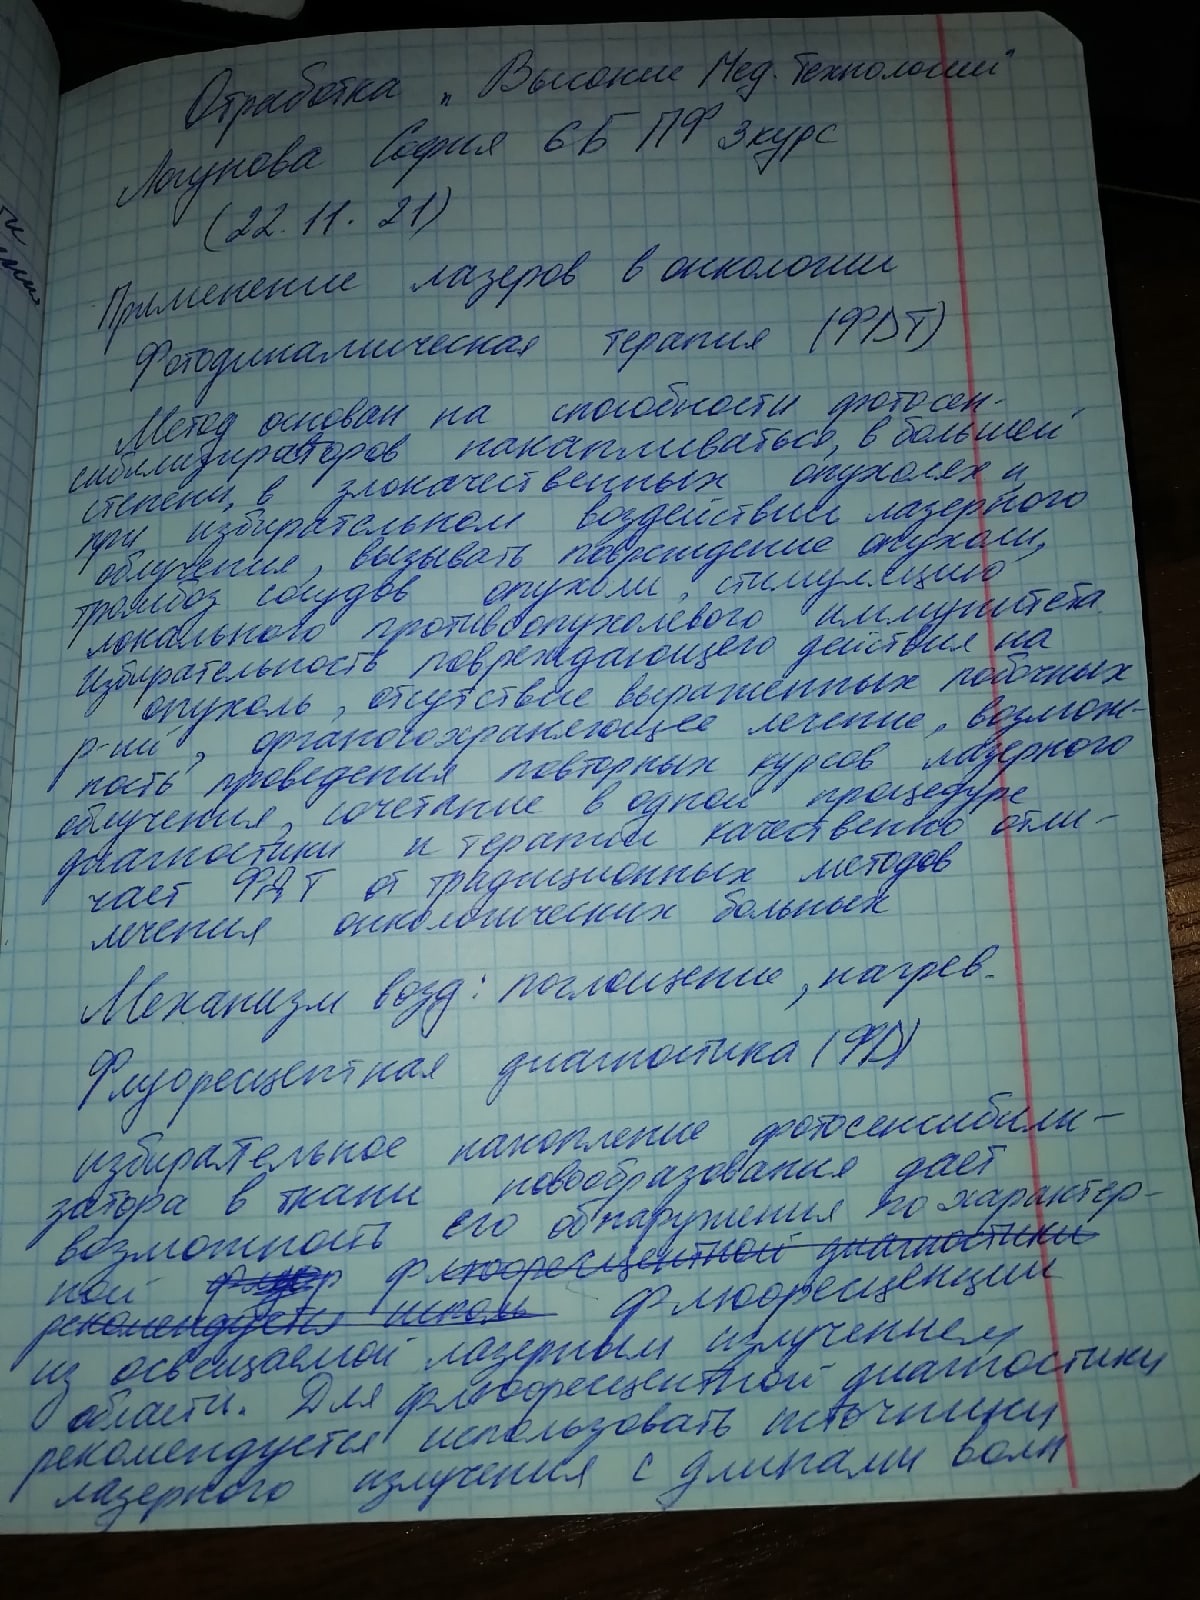 Отработка „Высокие Мед. Технологии"
Логунова София 6Б ПФ 3 курс
(22.11.21)
Применение лазеров в онкологии
Фотодинамическая терапия (ФДТ)
Метод основан на способности фотосен-
сибилизираторов накапливаться, в большей
степени, в злокачественных опухолях и
при избирательном воздействии лазерного
облучения, вызывать повреждение опухоли,
тромбоз сосудов опухоли, стимуляцию
локального противоопухолевого иммунитета
Избирательность повреждающего действия на
опухоль, отсутствие выраженных побочных
р-ий, органосохраняющее лечение, возмож-
ность проведения повторных курсов лазерного
облучения, сочетание в одной процедуре
диагностики и терапии качественно отли-
чает ФДТ от традиционных методов
лечения онкологических больных
Механизм возд: поглощение, нагрев.
Флуоресцентная диагностика (ФД)
избирательное накопление фотосенсибили-
затора в ткани новообразования дает
возможность его обнаружения по характер-
ной флюоресцентной диагностики
рекомендуется исполь флюоресценции
из освещаемой лазерным излучением
области. Для флюоресцентной диагностики
рекомендуется использовать источники
лазерного излучения с длинами волн